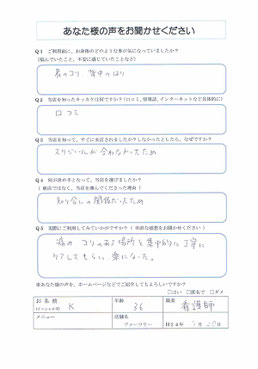 あなた様の声をお聞かせください
Q1 ご利用前に、お身体のどのような事が気になっていましたか?
(悩んでいたこと、不安に感じていたことなど)
肩のコリ 背中のはり
Q2 当店を知ったキッカケは何ですか?(口コミ、情報誌、インターネットなど具体的に)
口コミ
Q3 当店を知って、すぐに来店されましたか?しなかったとしたら、なぜですか?
スケジュールが合わなかったため
Q4 何が決め手となって、当店を選びましたか?
(他店ではなく、当店を選んでくださった理由)
知り合いの関係だったため
Q5 実際にご利用してみていかがですか?(率直な感想をお聞かせください)
肩の コリのある場所を集中的に丁寧に
ケアしてもらい、楽になった。
※あなた様の声を、ホームページなどでご紹介してもよろしいですか?
□はい □匿名で □ダメ
お名前 K 年齢 36 職業 看護師
メニュー 店舗名